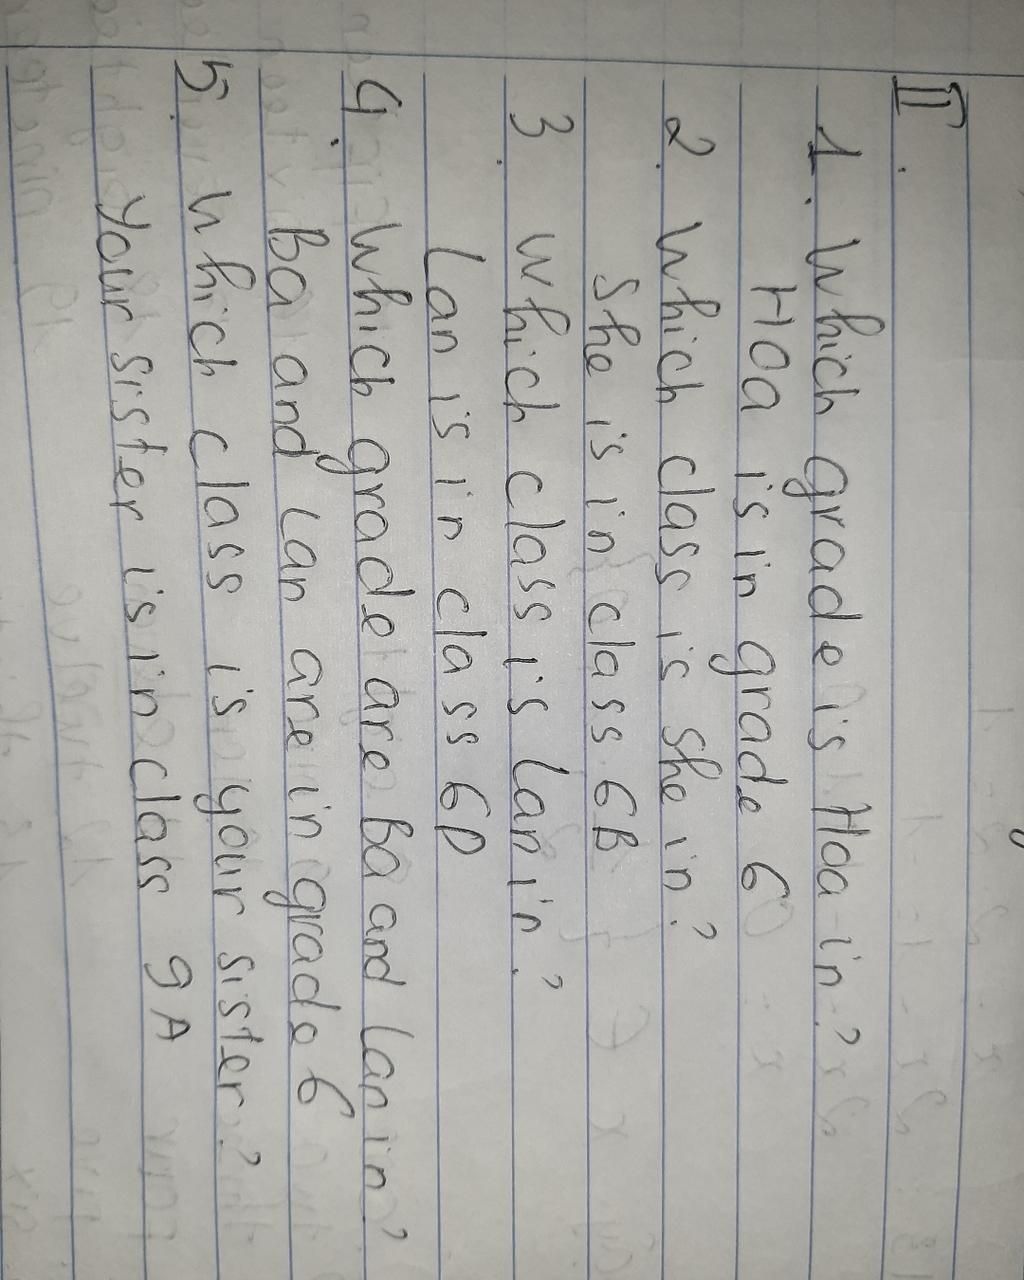 II.
1. Which grade is Hoa in?
Hoa is in grade 6
2. Which class is she in?
She is in class 6B
3. Which class is Lan in?
Lan is in class 6D
4. Which grade are ba and Lan in?
Ba and Lan are in grade 6
5. Which class is your sister?
Your sister is in class 9A